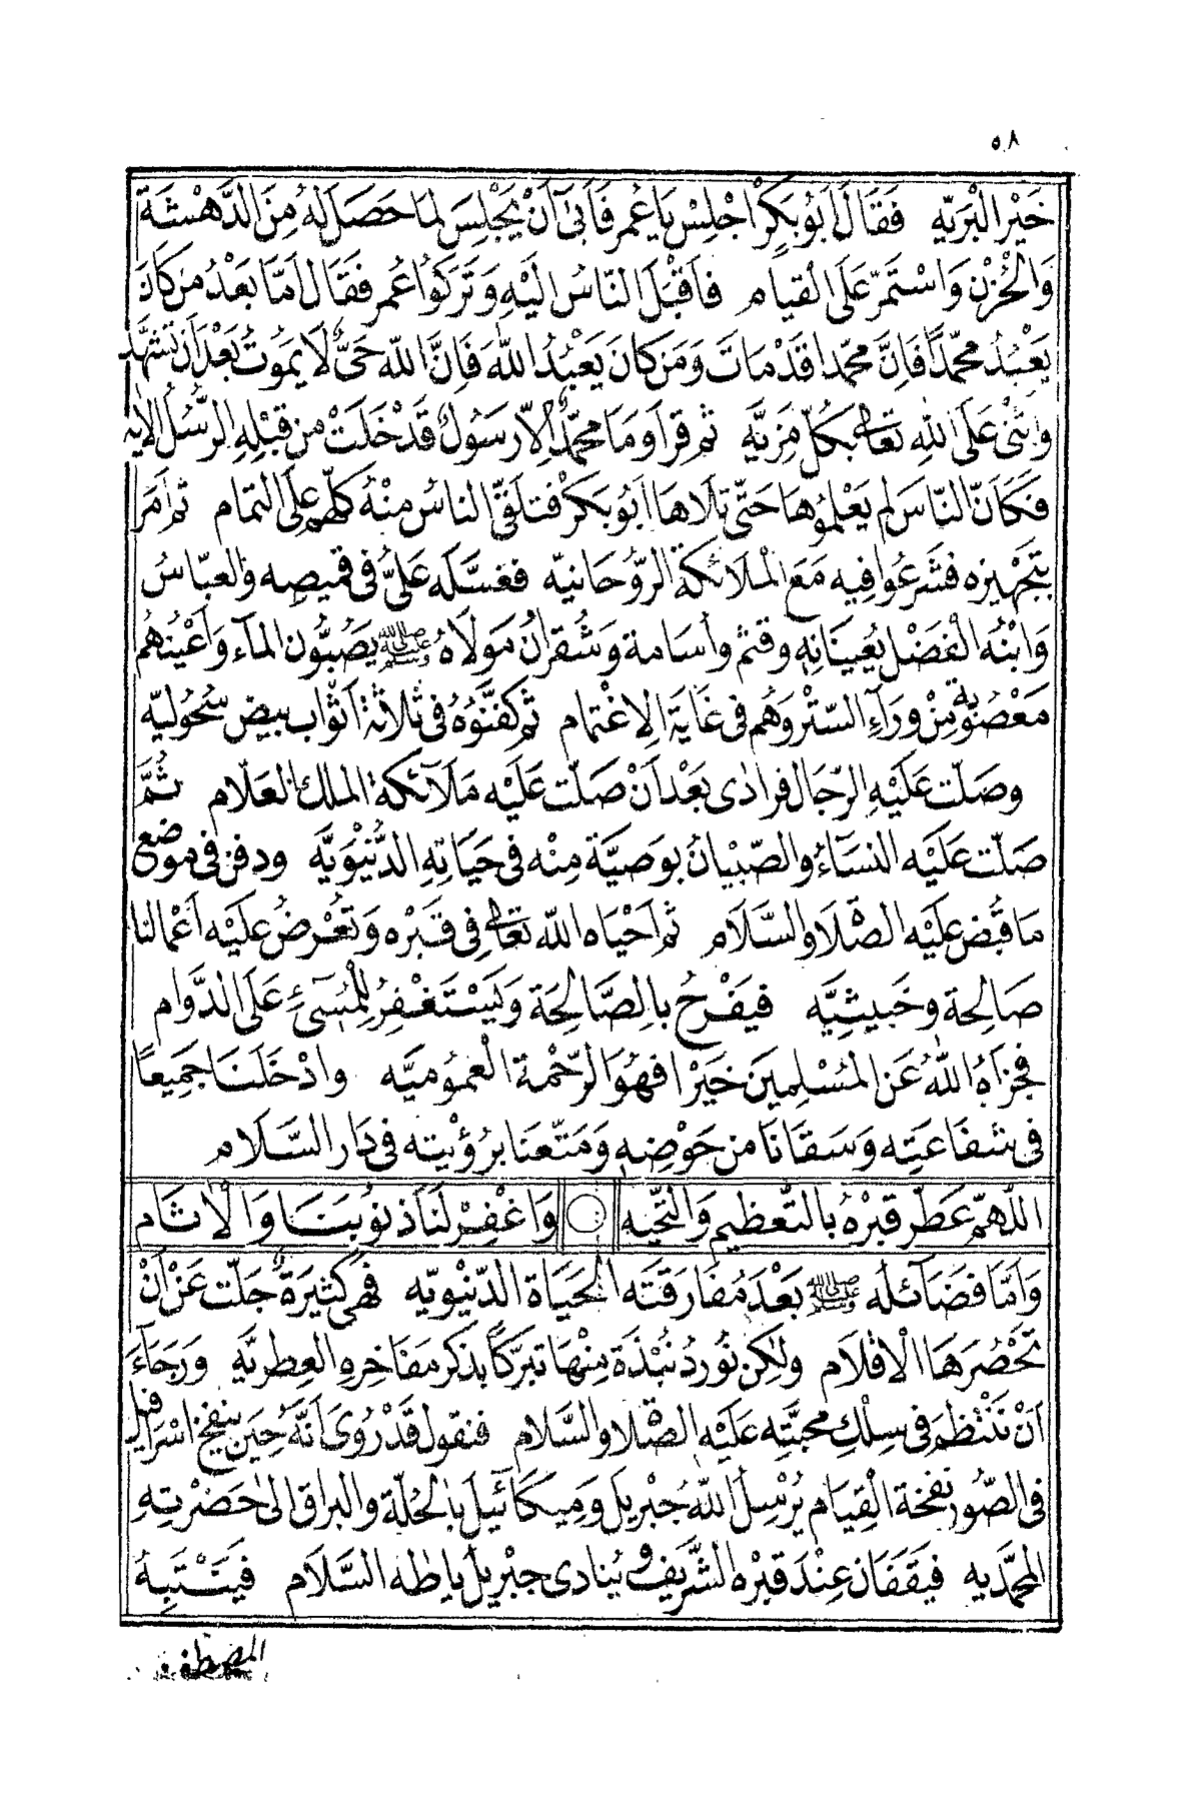 ٥٨
خَيْرِ الْبَرِيَّه فَقَالَ اَبُو بَكِرْ اجْلِسْ يَا عُمَر فَاَبٰى اَنْ يَجْلِسَ لِمَا حَصَلَ لَهُ مِنَ الدَّهْشَةِ
وَالْحُزْنِ وَاسْتَمَرَّ عَلَى الْقِيَام فَاَقْبَلَ النَّاسُ اِلَيْهِ وَتَرَكُوا عُمَر فَقَالَ اَمَّا بَعْدُ مَنْ كَانَ
يَعْبُدُ مُحَمَّدًا فَاِنَّ مُحَمَّدا قَدْ مَاتَ وَمَن كَانَ يَعْبُدُ اللّٰهَ فَاِنَّ اللّٰهَ حَىٌّ لَا يَمُوتُ بَعْدَ اَنْ تَشَهَّدَ
وَاَثْنٰى عَلَى اللّٰهِ تَعَالٰى بِكُلِّ مَزِيَّه ثم قرَاَ وَمَا مُحَمَّدٌ اِلَّا رَسُولٌ قَدْ خَلَتْ مِن قَبْلِهِ الرُّسُلُ الايه
فَكَاَنَّ النَّاسَ لَم يَعْلَمُوهَا حَتّٰى تَلَاهَا اَبُو بَكَرْ فَتَلَقَّى الناسُ مِنْهُ كُلُّهُم عَلَى التمام ثم اَمَرَ
بِتَجْهِيزِه فَشَرَعُوا فِيه مَعَ الْمَلَائِكَةِ الرُّوحَانيّه فغسَّلَه عَلىٌّ فى قَمِيصِه وَالعبّاسُ
وَابْنُهُ الْفَضْلُ يُعِينَانِه وقثم وأُسَامة وَشُقرانُ مَوْلَاهُ ﷺ يَصُبُّون المآءَ وَاَعْيُنُهُم
مَعْصُوبَة مِنْ وَرَآءِ السِّتْرِ وَهُم فى غَايَةِ الِاغْتِمَام ثم كَفَّنُوهُ فى ثَلَاثَةِ اَثْوَابٍ بيض سُحُوليّه
وصَلّت عَلَيْهِ الرّجَال فرادٰى بَعْدَ اَنْ صَلَّت عَلَيْهِ مَلَآئكة الملك العَلّام ثُمَّ
صَلَّت عَلَيْه النسَآءُ والصّبْيَانُ بوَصيَّةٍ مِنْه فى حَيَاتِهِ الدُّنْيَوِيَّه ودفن فى موضع
مَا قُبضَ عَلَيْه الصَّلَا والسَّلَام ثم اَحْيَاه اللّه تعَالٰى فِى قَبْرِه وَتُعْرَضُ عَلَيْه اَعْمالنا
صَالِحة وخَبيثيَّه فَيَفْرحُ بالصَّالِحَة وَيَسْتَغْفِرُ لِلْمُسِىءِ عَلَى الدَّوام
فجزَاهُ اللّٰهُ عَنِ المُسْلِمِينَ خَيْرا فهُوَ الرّحْمة الْعُمُوميَّه وادْخَلَنَا جَمِيعًا
فى شفَاعَتِه وَسَقَانَا من حَوْضِه وَمَتّعَنا برُؤيته فى دَار السَّلَام
اللّهمّ عَطّر قَبْرهُ بالتَّعظيم وَالتَّحيّه وَاغْفِرْ لَنَا ذنُوبَنَا وَالْاٰثَام
وَاَمَّا فَضَآئله ﷺ بَعْدَ مُفارَقَتِه الحَيَاةَ الدّنْيوِيّه فَهِىَ كَثيرَةٌ جَلّت عَنْ اَنْ
تَحْصُرَهَا الْاَقلَام ولٰكِن نُورِدُ نُبْذَة مِنْهَا تبرّكًا بذكر مفَاخرِه العِطريَّه وَرَجَآءَ
اَنْ نَنْتَظِمَ فى سِلْكِ محبَّتِه عَلَيْهِ الصَّلَا والسَّلَام فنقول قَدْ رُوىَ اَنَّهُ حِينَ ينفخ اسْرَافيل
فى الصُّور نَفخَةَ القِيَام يُرْسِلُ اللّٰهُ جبْريل وَمِيكآئيل بالحُلّة والبراق الى حَضرتِهِ
المحمّديه فَيَقفَان عِنْدَ قبْرِه الشَّريف ويُنَادى جبْريل يَا طٰه السَّلَام فَيَنْتَبِهُ
المصطفى